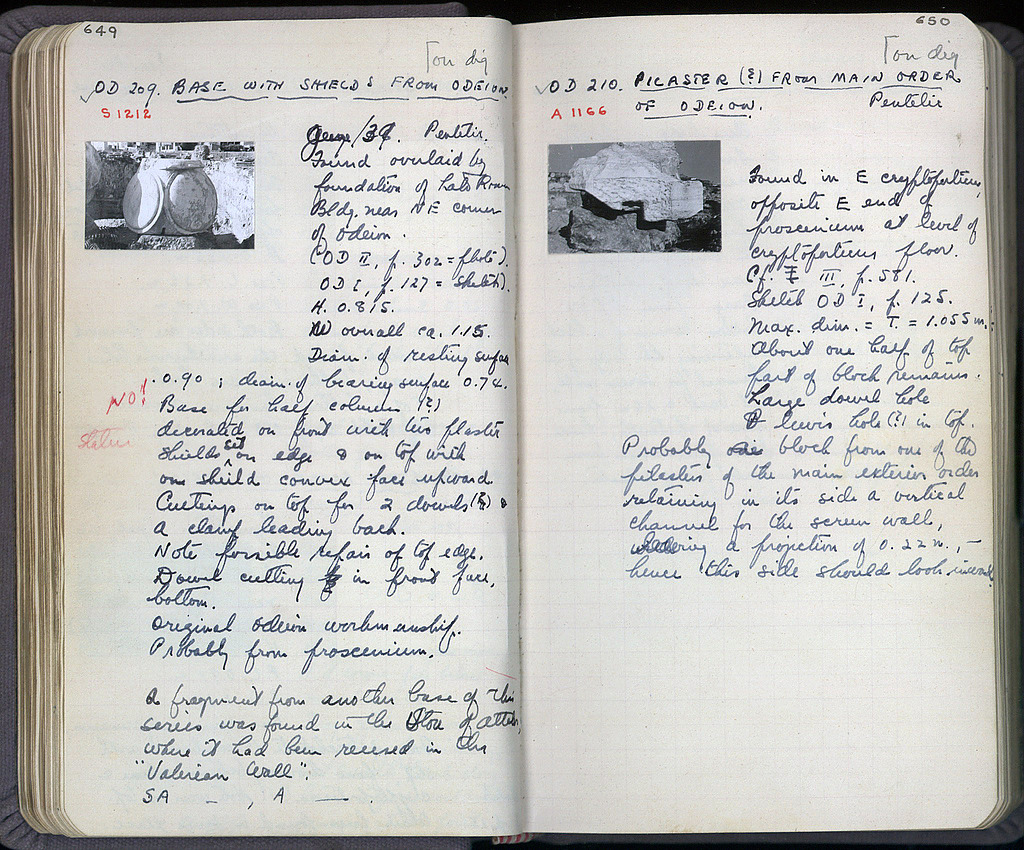 649
[on dig
✓OD 209. BASE WITH SHIELDS FROM ODEION.
S 1212
Pentelic.
Found overlaid by
foundation of Late Roman
Bldg. near NE corner
of Odeion.
(OD II, p. 302 = photo).
OD I, p. 127 = sketch).
H. 0.815.
W overall ca. 1.15.
Diam. of resting surface
0.90 ; diam. of bearing surface 0.74.
NO! Base for half column (?)
decorated on front with two plaster
Statue
shields set on edge & on top with
one shield convex face upward
Cuttings on top for 2 dowels (?) &
a clamp leading back.
Note possible repair of top edge.
Dowel cutting in front face,
bottom.
Original Odeion workmanship.
Probably from proscenium.
A fragment from another base of this
series was found in the Stoa of Attalos,
where it had been reused in the
"Valerian Wall".
SA — , A — .
650
[on dig
✓OD 210. PILASTER (?) FROM MAIN ORDER
OF ODEION. Pentelic
A 1166
Found in E cryptoporticus,
opposite E end of
proscenium at level of
cryptoporticus floor.
Cf. III, p. 581.
Sketch OD I, p. 125.
Max. dim. = T. = 1.055 m.
About one half of top
part of block remains.
Large dowel hole
& lewis hole (?) in top.
Probably block from one of the
pilasters of the main exterior order
retaining in its side a vertical
channel for the screen wall,
a projection of 0.22 m., —
hence this side should look inward.